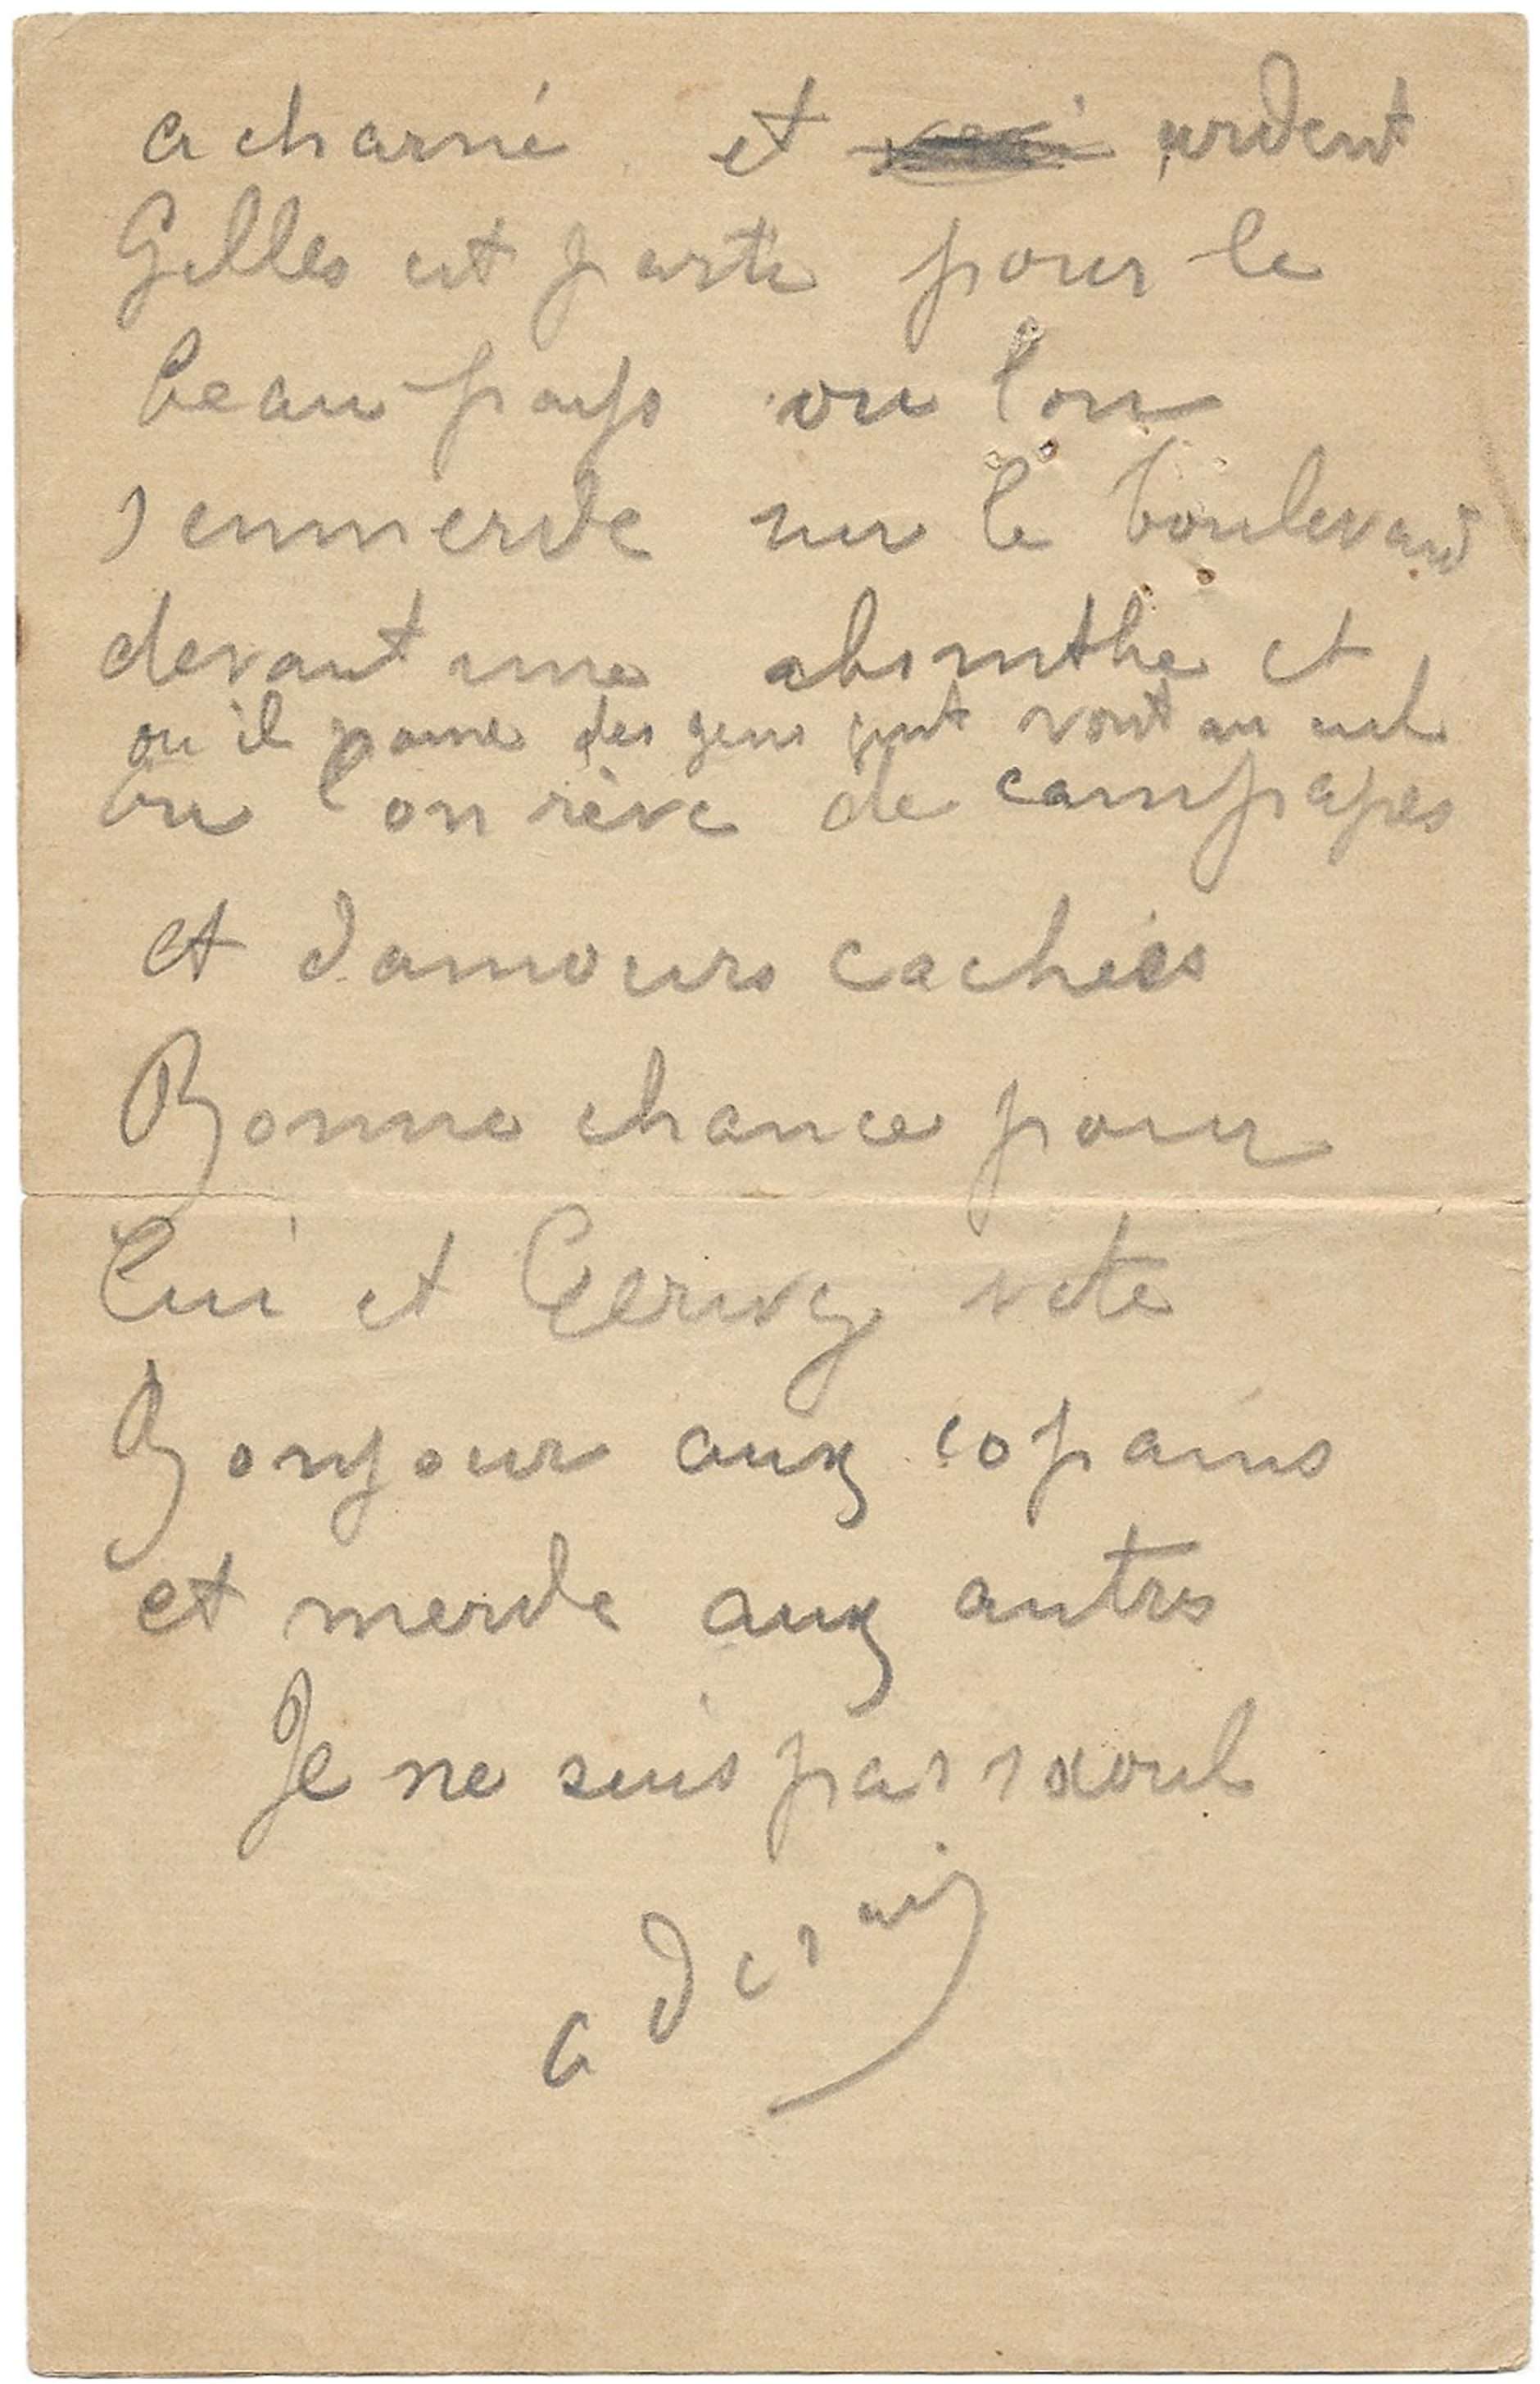 acharné et ardent
Gilles est parti pour le
beau pays ou lon
s enmerde sur le boulevard
devant une absinthe et
ou il passe des gens qui vont au
ou l'on rêve de campagnes
et damours cachées
Bonne chance pour
lui et vite
Bonjour aux copains
et merde aux autres
Je ne suis pas soul
a derain